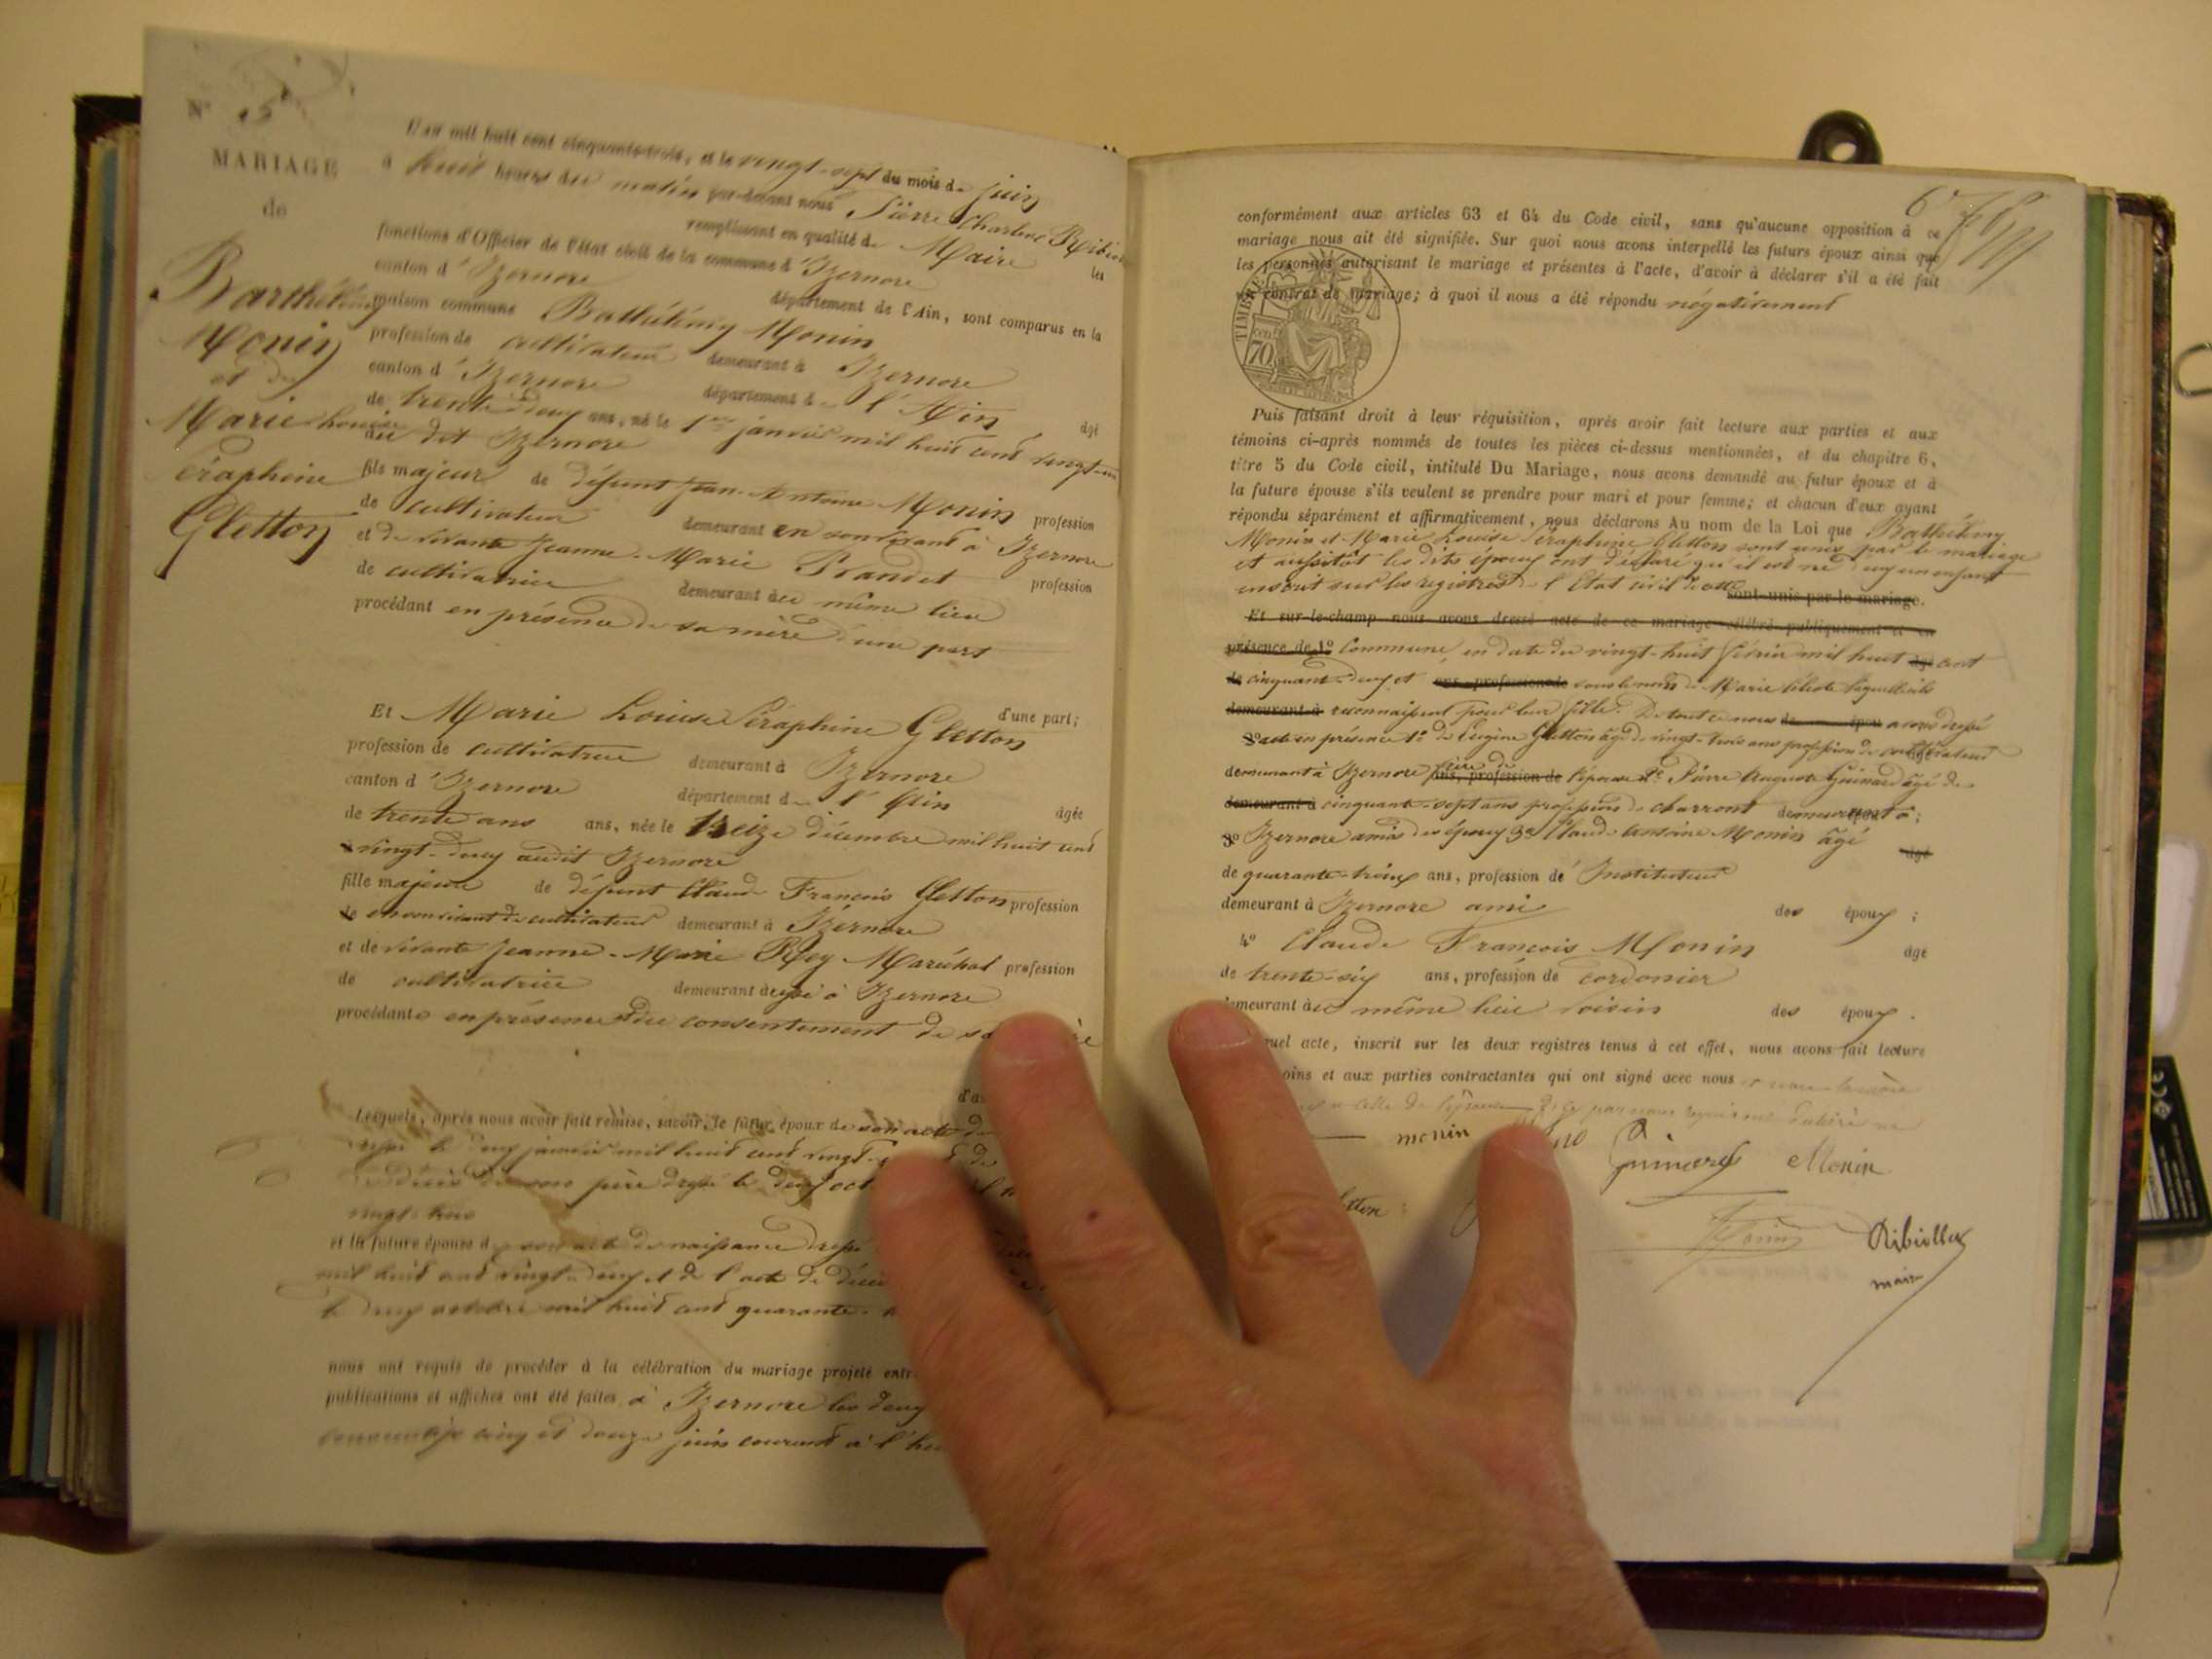 N° 15
MARIAGE
de
Barthélemy
Monin
et de
Marie Louise
Séraphine
Gletton
L'an mil huit cent cinquante-trois, et le vingt-sept du mois de juin
à huit heures du matin par-devant nous Pierre Charlene
remplissant en qualité de Maire les
fonctions d'Officier de l'état civil de la commune d'Izernore
canton d'Izernore département de l'Ain, sont comparus en la
maison commune Bathélémy Monin
profession de cultivateur demeurant à Izernore
canton d'Izernore département de l'Ain âgé
de trente deux ans, né le 1er janvier mil huit cent vingt-un
au dit Izernore
fils majeur de défunt Jean-Antoine Monin profession
de cultivateur demeurant en son vivant à Izernore
et de vivante Jeanne-Marie profession
de cultivatrice demeurant au même lieu
procédant en présence de sa mère d'une part
d'une part;
Et Marie Louise Séraphine Gletton
profession de cultivatrice demeurant à Izernore
canton d'Izernore département de l'Ain âgée
de trente ans ans, née le treize décembre mil huit cent
vingt-deux audit Izernore
fille majeure de défunt Claude François Gletton profession
de en son vivant de cultivateur demeurant à Izernore
et de vivante Jeanne-Marie Rey-Maréchal profession
de cultivatrice demeurant à Izernore
procédante en présence et du consentement de sa
Lesquels, après nous avoir fait remise, savoir, le futur époux de son acte de
le deux janvier mil huit cent vingt- de
décès de son père dressé le deux
vingt-trois
et la future épouse de son acte de naissance dressé
mil huit cent vingt-deux et de l'acte de décès
le deux octobre mil huit cent quarante-
nous ont requis de procéder à la célébration du mariage projeté entre
publications et affiches ont été faites à Izernore les deux
cinq et douze juin courant à l'heure
conformément aux articles 63 et 64 du Code civil, sans qu'aucune opposition à ce
mariage nous ait été signifiée. Sur quoi nous avons interpellé les futurs époux ainsi que
les personnes autorisant le mariage et présentes à l'acte, d'avoir à déclarer s'il a été fait
un contrat de mariage; à quoi il nous a été répondu négativement
TIMBRE
70
Puis faisant droit à leur réquisition, après avoir fait lecture aux parties et aux
témoins ci-après nommés de toutes les pièces ci-dessus mentionnées, et du chapitre 6,
titre 5 du Code civil, intitulé Du Mariage, nous avons demandé au futur époux et à
la future épouse s'ils veulent se prendre pour mari et pour femme; et chacun d'eux ayant
répondu séparément et affirmativement, nous déclarons Au nom de la Loi que Bathélémy
Monin et Marie Louise Séraphine Gletton sont unis par le mariage
et aussitôt les dits époux ont déclaré qu'il est né d'eux un enfant
inscrit sur les registres de l'Etat civil de cette sont unis par le mariage.
Et sur-le-champ nous avons dressé acte de ce mariage célébré publiquement et en
présence de 1° Commune, en date du vingt-huit février mil huit âgé cent
de cinquante-deux et ans, profession de sous le nom de Marie laquelle ils
demeurant à reconnaissent pour leur fille. De tout ce nous de époux avons dressé
acte en présence 1° de Eugène Gletton âgé de vingt-trois ans profession de cultivateur
demeurant à Izernore frère de ans, profession de l'épouse 2° Pierre Auguste Guinard âgé de
demeurant à cinquante-sept ans profession de charront demeurant à;
3° Izernore amis des époux 3° Claude Antoine Monin âgé âgé
de quarante-trois ans, profession de Instituteur
demeurant à Izernore ami des époux;
4° Claude François Monin âgé
de trente-six ans, profession de cordonier
demeurant au même lieu voisin des époux.
quel acte, inscrit sur les deux registres tenus à cet effet, nous avons fait lecture
oins et aux parties contractantes qui ont signé avec nous
celle de l'épouse
monin Guinard Monin
etton
Monin Ribiollet
maire